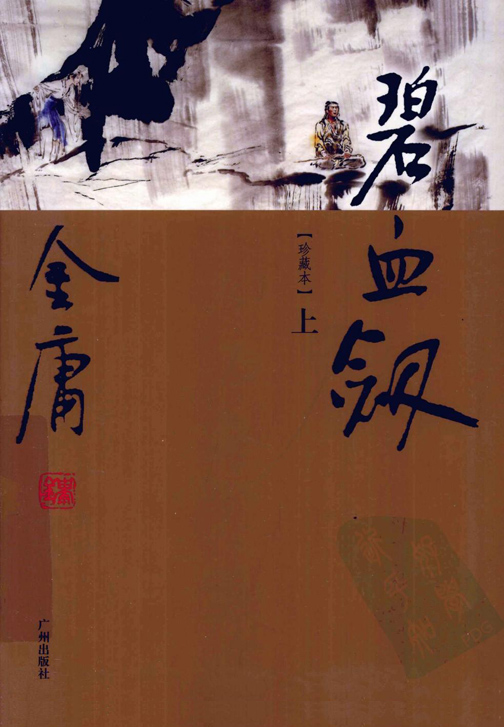 碧血劍
【珍藏本】
上
金庸
广州出版社